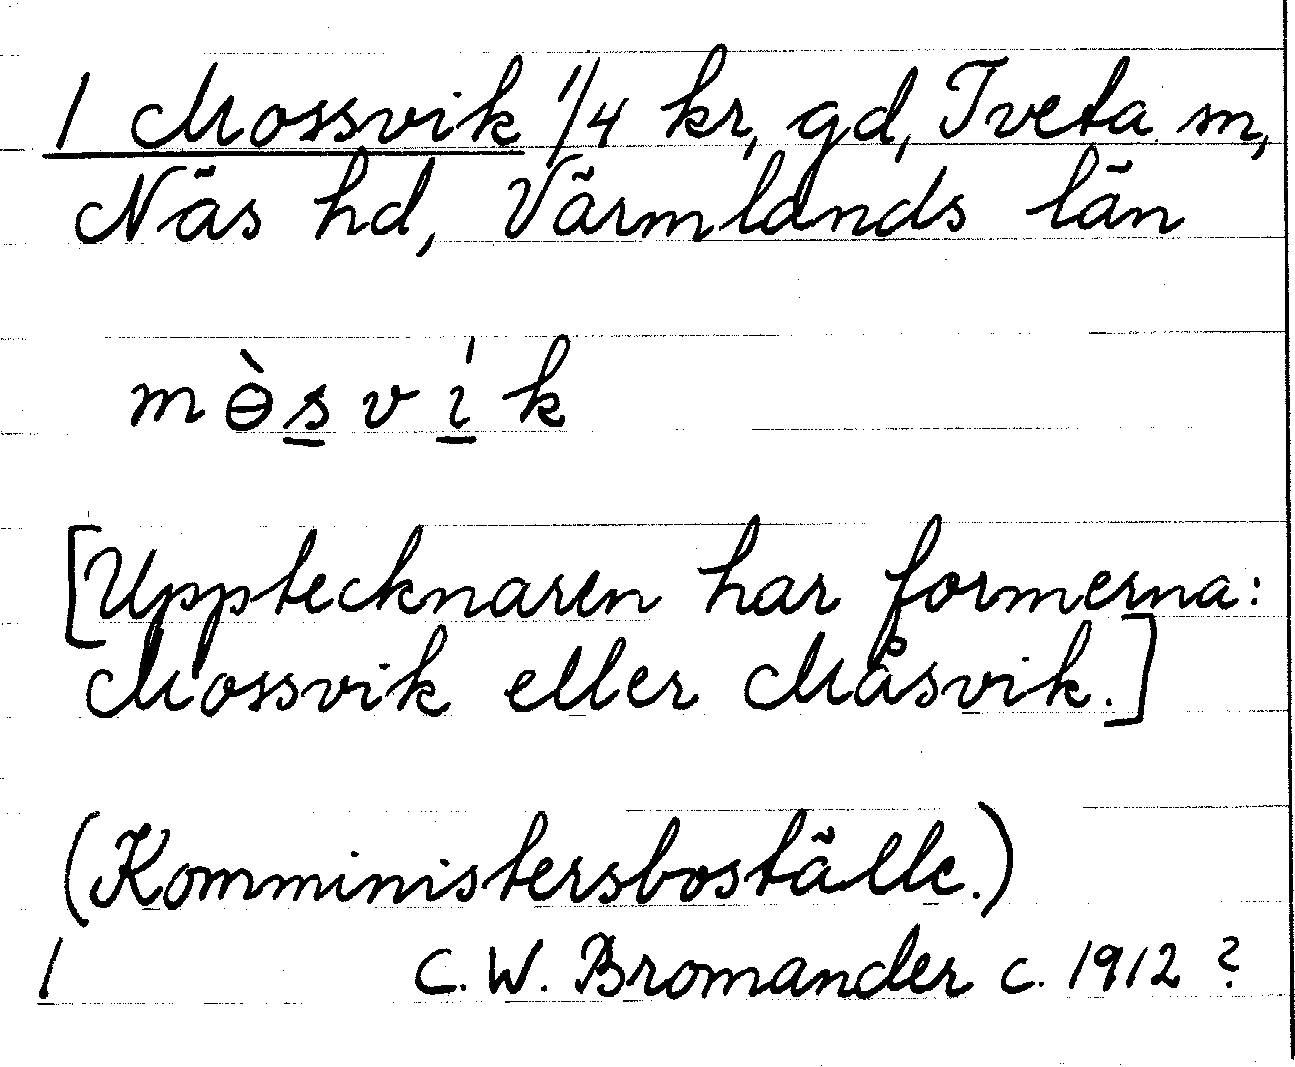 1 Mossvik 1/4 kr, gd, Tveta sn,
Näs hd, Värmlands län
mɵ̀s̲vı̲́k
[Upptecknaren har formerna:
Mossvik eller Måsvik.]
(Komministersboställe.)
1 C. W. Bromander c. 1912 ?